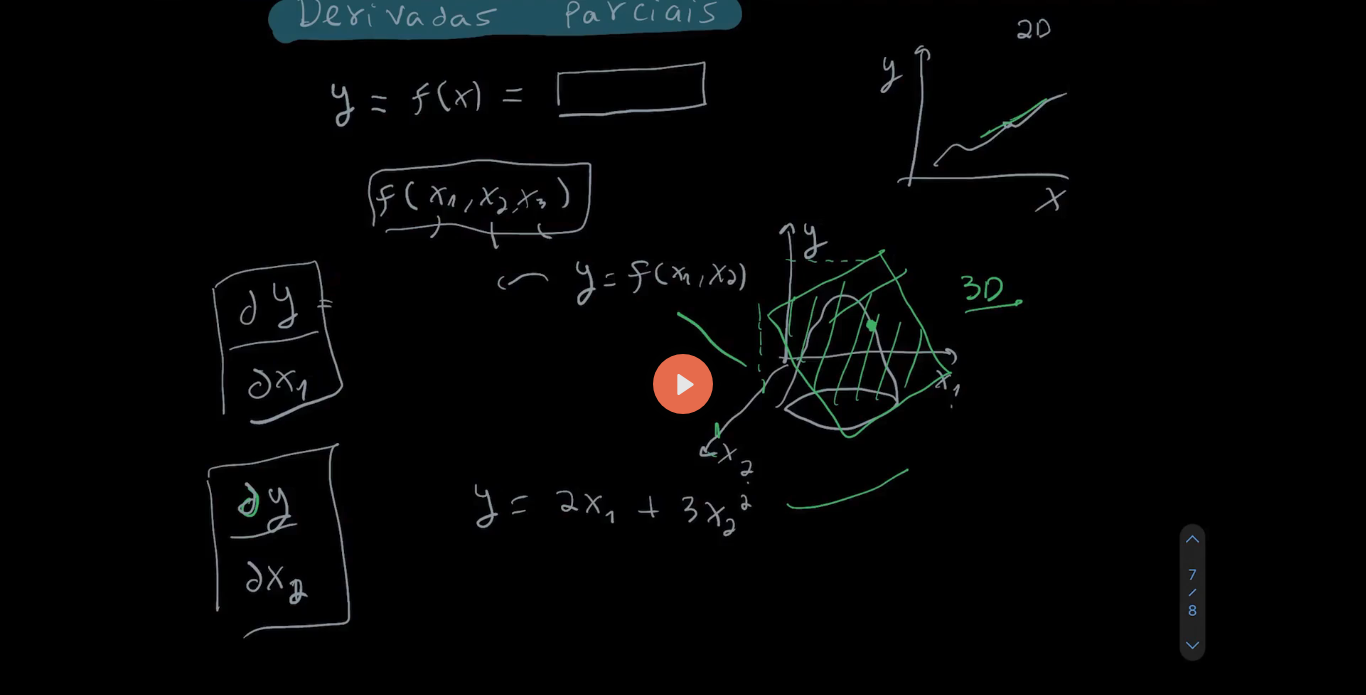 Derivadas parciais
2D
y = f(x) =
y
x
f(x1, x2, x3)
y
y = f(x1, x2)
3D
∂y =
∂x1
x1
x2
y = 2x1 + 3x2²
∂y
∂x2
7
/
8